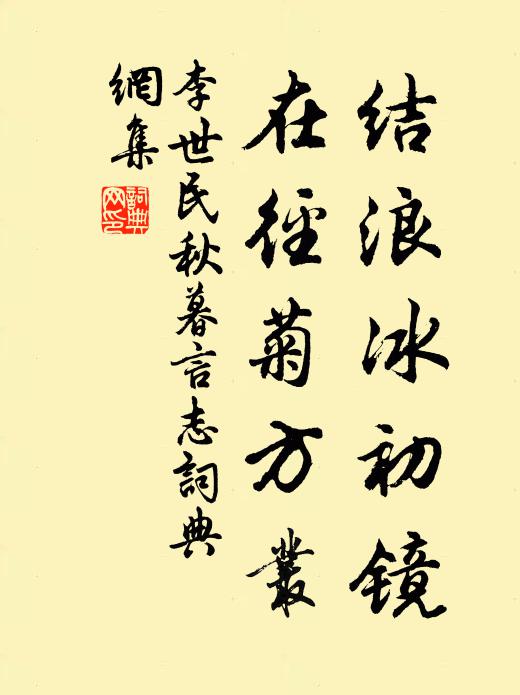 结浪冰初镜
在径菊方丛
李世民秋暮言志詞典
網集
詞典
网印